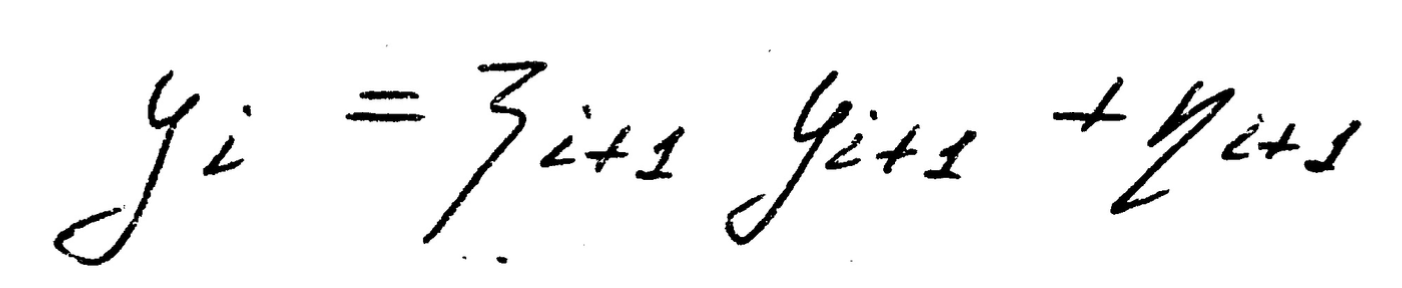 y_i = ξ_{i+1} y_{i+1} + η_{i+1}